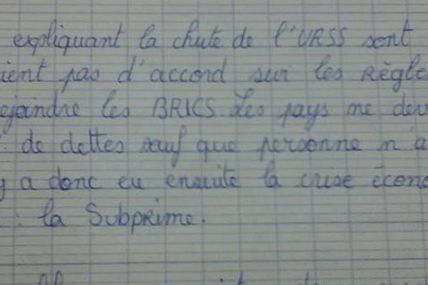 expliquant la chute de l'URSS sont
ient pas d'accord sur les Règle
ejoindre les BRICS. Les pays ne dev
de dettes sauf que personne n'a
y a donc eu ensuite la crise écono
la Subprime.